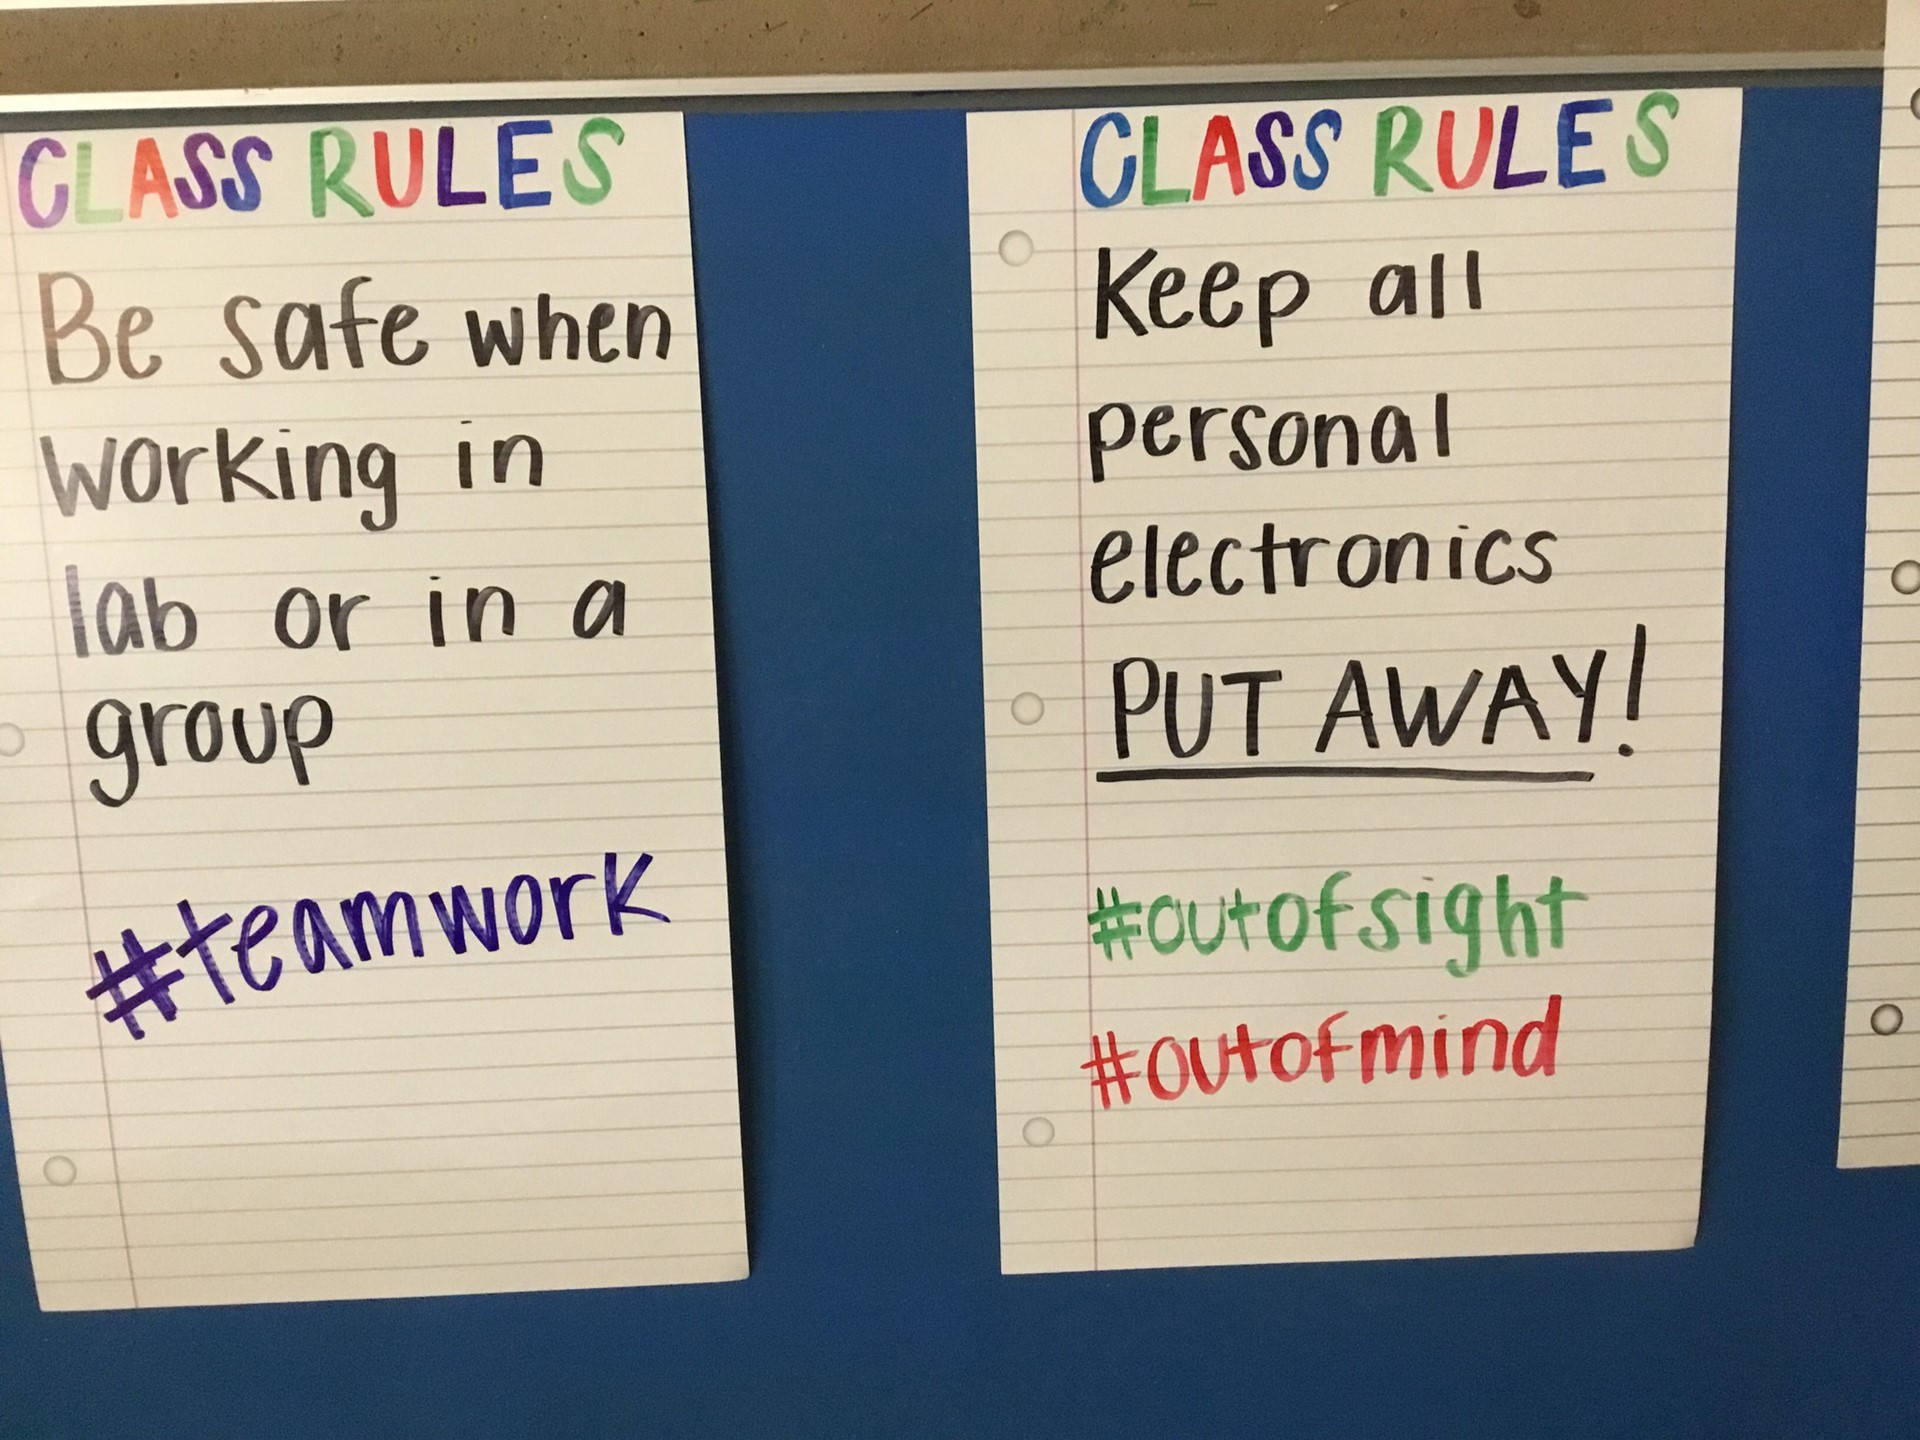 CLASS RULES
Be safe when
working in
lab or in a
group
#teamwork
CLASS RULES
Keep all
personal
electronics
PUT AWAY!
#outofsight
#outofmind